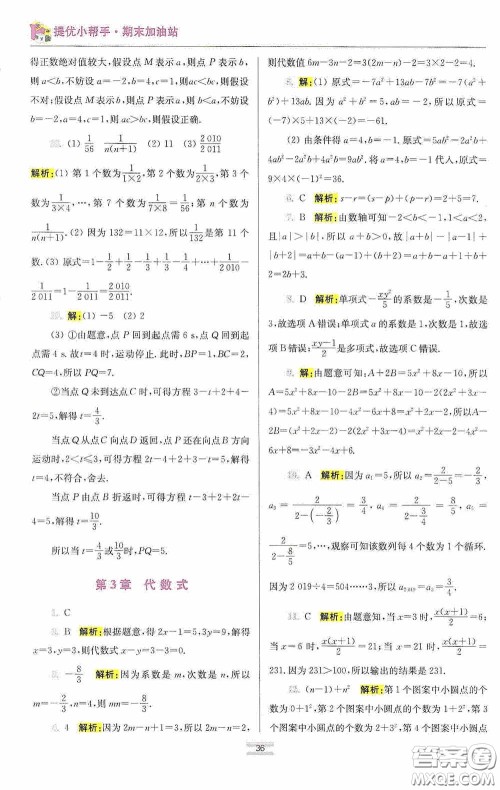 提优小帮手·期末加油站
得正数绝对值较大,假设点M表示a,则点P表示b,
则a<b,不妨设a=-2,b=4,c=1,则ac<bc,则假设
不对;假设点M表示b,则点P表示a,则b<a,不妨设
b=-2,a=4,c=1,所以ac>bc,则假设正确.
(1) 1/56 1/n(n+1) (2) 11 (3) 2 010/2 011
解析:(1)第1个数为1/1×2,第2个数为1/2×3,第3个
数为1/3×4,…,第7个数为1/7×8=1/56;第n个数为
1/n(n+1).(2)因为132=11×12,所以1/132是第11个
数.(3)原式=1-1/2+1/2-1/3+…+1/2 010-
1/2 011=1-1/2 011=2 010/2 011.
解:(1)-5 (2)2
(3)①由题意,点P回到起点需6 s,点Q回到起
点需4 s.故t=4时,运动停止.此时,BP=1,BC=2,
CQ=4,所以PQ=7.
②当点Q未到达点C时,可得方程3-t+2+4-
2t=5,解得t=4/3.
当点Q从点C向点D返回,点P还在点B右方向
运动时,2<t≤3,可得方程2t-4+2+3-t=5,解得
t=4,不符合,舍去.
当点P由点B折返时,可得方程t-3+2+2t-
4=5,解得t=10/3.
所以当t=4/3或10/3时,PQ=5.
第3章 代数式
1. C
2. B 解析:根据题意,得2x-1=5,3y=9,解得
x=3,y=3,则代数式mx-ny=3m-3n=3.
3. -8/3 解析:因为系数是m,次数是n,所以
m=-8/3,n=3,则mn=-8/3×3=-8.
4. 4 解析:因为2m-n+1=3,所以2m-n=2,
则代数值6m-3n-2=3(2m-n)-2=3×2-2=4.
5. 解:(1)原式=-7a²+13ab-7b²=-7(a²+
b²)+13ab.因为a²+b²=5,ab=-2,所以原式=
(-7)×5+13×(-2)=-61.
(2)由条件得a=4,b=-1,原式=5ab²-2a²b+
4ab²-2a²b+4a²b=9ab².将a=4,b=-1代人,原式=
9×4×(-1)²=36.
6. C 解析:s-r=(s-p)+(p-r)=2+5=7.
7. B 解析:由数轴可知-2<b<-1,1<a<2,
且|a|>|b|,所以a+b>0,故|a+b|-|a-1|+
|b+2|=a+b-(a-1)+(b+2)=a+b-a+1+b+
2=2b+3.
8. D 解析:单项式-xy²/5的系数是-1/5,次数是
3,故选项A错误;单项式a的系数是1,次数是1,故选
项B错误;xy-1/2是多项式,故选项C错误.
9. 解:由题意可知:A+2B=5x²+8x-10,所以
A=5x²+8x-10-2B=5x²+8x-10-2(2x²+3x-
4)=5x²+8x-10-4x²-6x+8=x²+2x-2.所以A-
2B=(x²+2x-2)-2(2x²+3x-4)=x²+2x-2-4x²-
6x+8=-3x²-4x+6.
10. A 解析:因为a₁=5,所以a₂=2/2-5=-2/3,
a₃=2/2-(-2/3)=2/(8/3)=3/4,a₄=2/2-3/4=8/5,a₅=
2/2-8/5=5,…,观察可知该数列每4个代数为1个循环.
因为2 019÷4=504……3,所以a₂₀₁₉=a₃=3/4.
11. C 解析:由题意知,当x=3时,x(x+1)/2=
6;当x=6时,x(x+1)/2=21;当x=21时,x(x+1)/2=
231.因为231>100,所以输出的结果是231.
12. (n-1)+n² 解析:第1个图案中小圆点的个
数为0+1²,第2个图案中小圆点的个数为1+2²,第3
个图案中小圆点的个数为2+3²,第4个图案中小圆点
36
答案圈
MXQE.COM